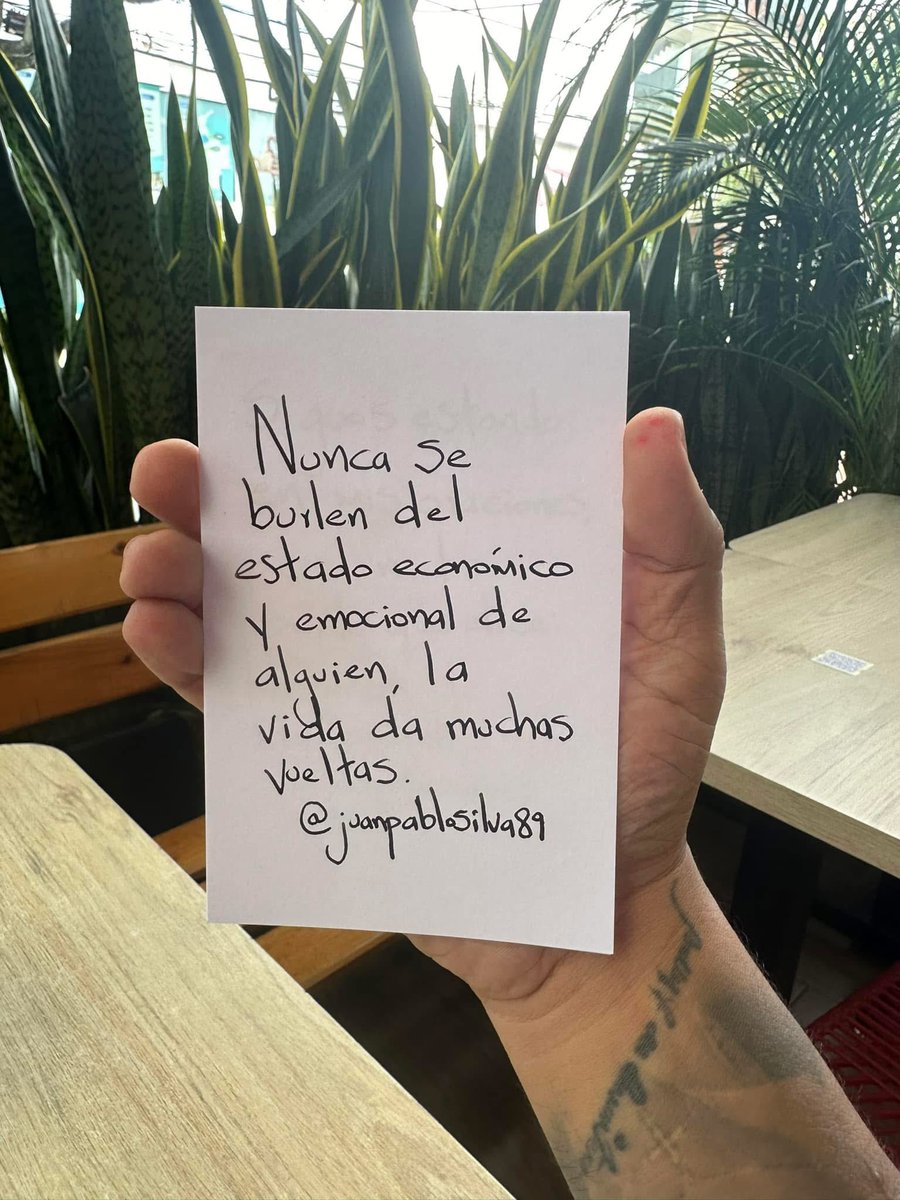 Nunca se
burlen del
estado económico
y emocional de
alguien, la
vida da muchas
vueltas.
@juanpablosilva89